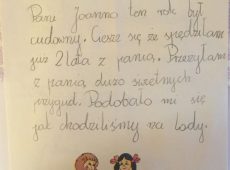 Pani Joanno ten rok był
cudowny. Ciesze się że spędziłam
już 2 lata z panią. Przeżyłam
z panią dużo świetnych
przygód. Podobało mi się
jak chodziliśmy na lody.